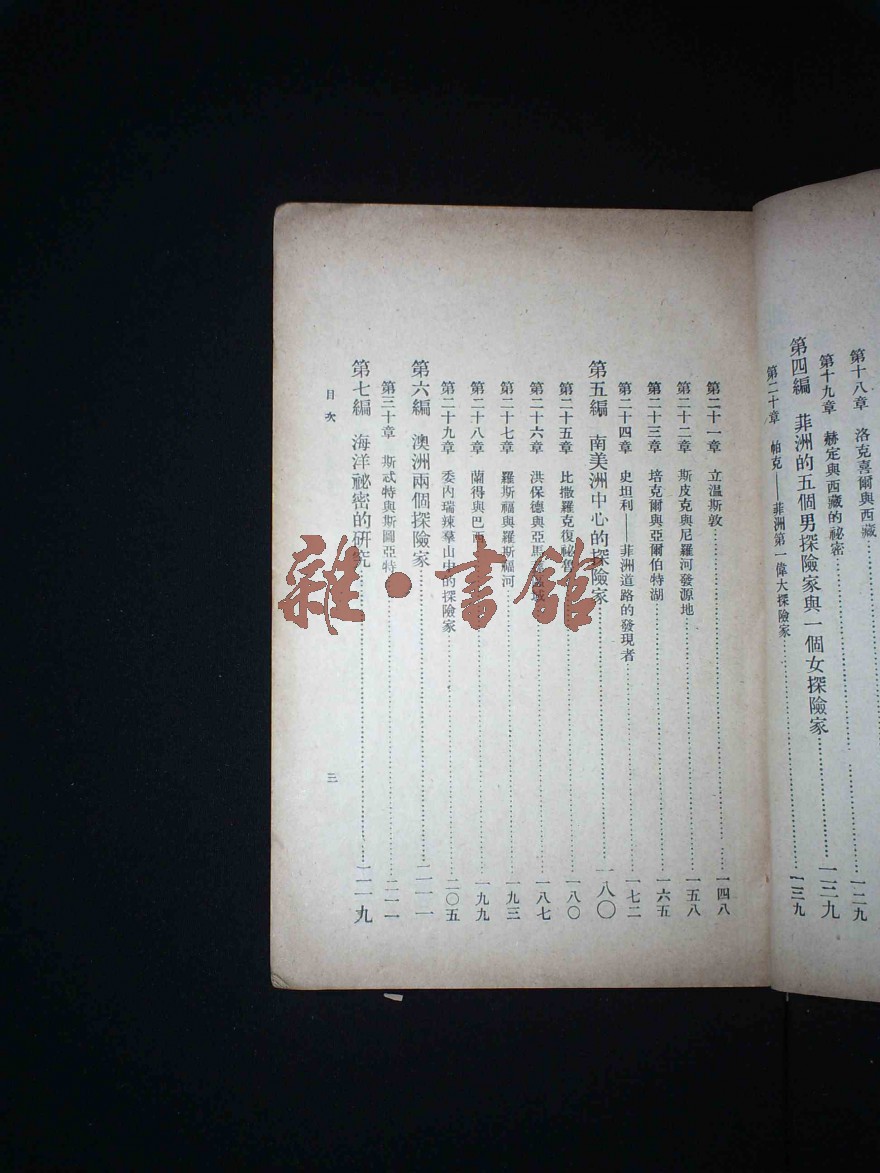 第十八章　洛克喜爾與西藏……一二九
第十九章　赫定與西藏的祕密……一三九
第四編　菲洲的五個男探險家與一個女探險家……一三九
第二十章　帕克——菲洲第一偉大探險家……一三九
第二十一章　立溫斯敦……一四八
第二十二章　斯皮克與尼羅河發源地……一五八
第二十三章　培克爾與亞爾伯特湖……一六五
第二十四章　史坦利——菲洲道路的發現者……一七二
第五編　南美洲中心的探險家……一八〇
第二十五章　比撒羅克復祕魯……一八〇
第二十六章　洪保德與亞馬孫區域……一八七
第二十七章　羅斯福與羅斯福河……一九三
第二十八章　蘭得與巴西……一九九
第二十九章　委內瑞辣羣山中的探險家……二〇五
第六編　澳洲兩個探險家……二一一
第三十章　斯忒特與斯圖亞特……二一一
第七編　海洋祕密的研究……二一九
目次
三
雜·書館